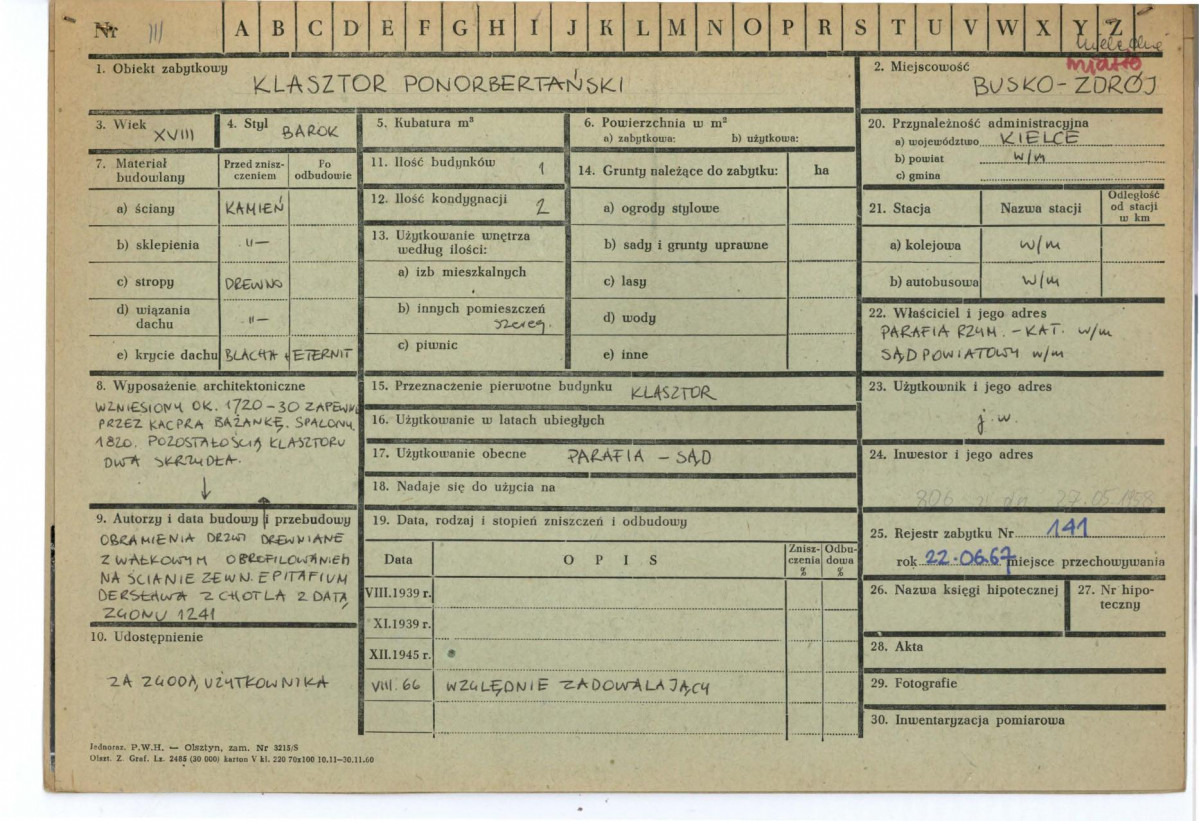 Nr III A B C D E F G H I J K L M N O P R S T U V W X Y Z
miasto
1. Obiekt zabytkowy
KLASZTOR PONORBERTAŃSKI
2. Miejscowość
BUSKO-ZDRÓJ
3. Wiek XVIII
4. Styl BAROK
5. Kubatura m³
6. Powierzchnia w m²
a) zabytkowa: b) użytkowa:
7. Materiał budowlany
Przed zniszczeniem
Po odbudowie
a) ściany KAMIEŃ
b) sklepienia -"-
c) stropy DREWNO
d) wiązania dachu -"-
e) krycie dachu BLACHA + ETERNIT
8. Wyposażenie architektoniczne
WZNIESIONY OK. 1720-30 ZAPEWNE
PRZEZ KACPRA BAŻANKĘ. SPALONY
1820. POZOSTAŁOŚCIĄ KLASZTORU
DWA SKRZYDŁA.
9. Autorzy i data budowy i przebudowy
OBRAMIENIA DRZWI DREWNIANE
Z WAŁKOWYM OBROFILOWANIEM
NA ŚCIANIE ZEWN. EPITAFIUM
DERSŁAWA Z CHOTLA Z DATĄ
ZGONU 1241
10. Udostępnienie
ZA ZGODĄ UŻYTKOWNIKA
11. Ilość budynków 1
12. Ilość kondygnacji 2
13. Użytkowanie wnętrza
według ilości:
a) izb mieszkalnych
b) innych pomieszczeń
szereg.
c) piwnic
14. Grunty należące do zabytku: ha
a) ogrody stylowe
b) sady i grunty uprawne
c) lasy
d) wody
e) inne
15. Przeznaczenie pierwotne budynku KLASZTOR
16. Użytkowanie w latach ubiegłych
17. Użytkowanie obecne PARAFIA - SĄD
18. Nadaje się do użycia na
19. Data, rodzaj i stopień zniszczeń i odbudowy
Data OPIS Zniszczenia % Odbudowa %
VIII.1939 r.
XI.1939 r.
XII.1945 r.
VIII.66 WZGLĘDNIE ZADOWALAJĄCY
20. Przynależność administracyjna
a) województwo KIELCE
b) powiat w/m
c) gmina
21. Stacja Nazwa stacji Odległość od stacji w km
a) kolejowa w/m
b) autobusowa w/m
22. Właściciel i jego adres
PARAFIA RZYM.-KAT. w/m
SĄD POWIATOWY w/m
23. Użytkownik i jego adres
j.w.
24. Inwestor i jego adres
806 z dn 27.05.1958
25. Rejestr zabytku Nr 141
rok 22.06.67 miejsce przechowywania
26. Nazwa księgi hipotecznej
27. Nr hipoteczny
28. Akta
29. Fotografie
30. Inwentaryzacja pomiarowa
Jednoraz. P.W.H. — Olsztyn, zam. Nr 3215/S
Olszt. Z. Graf. Lz. 2485 (30 000) karton V kl. 220 70x100 10.11—30.11.60